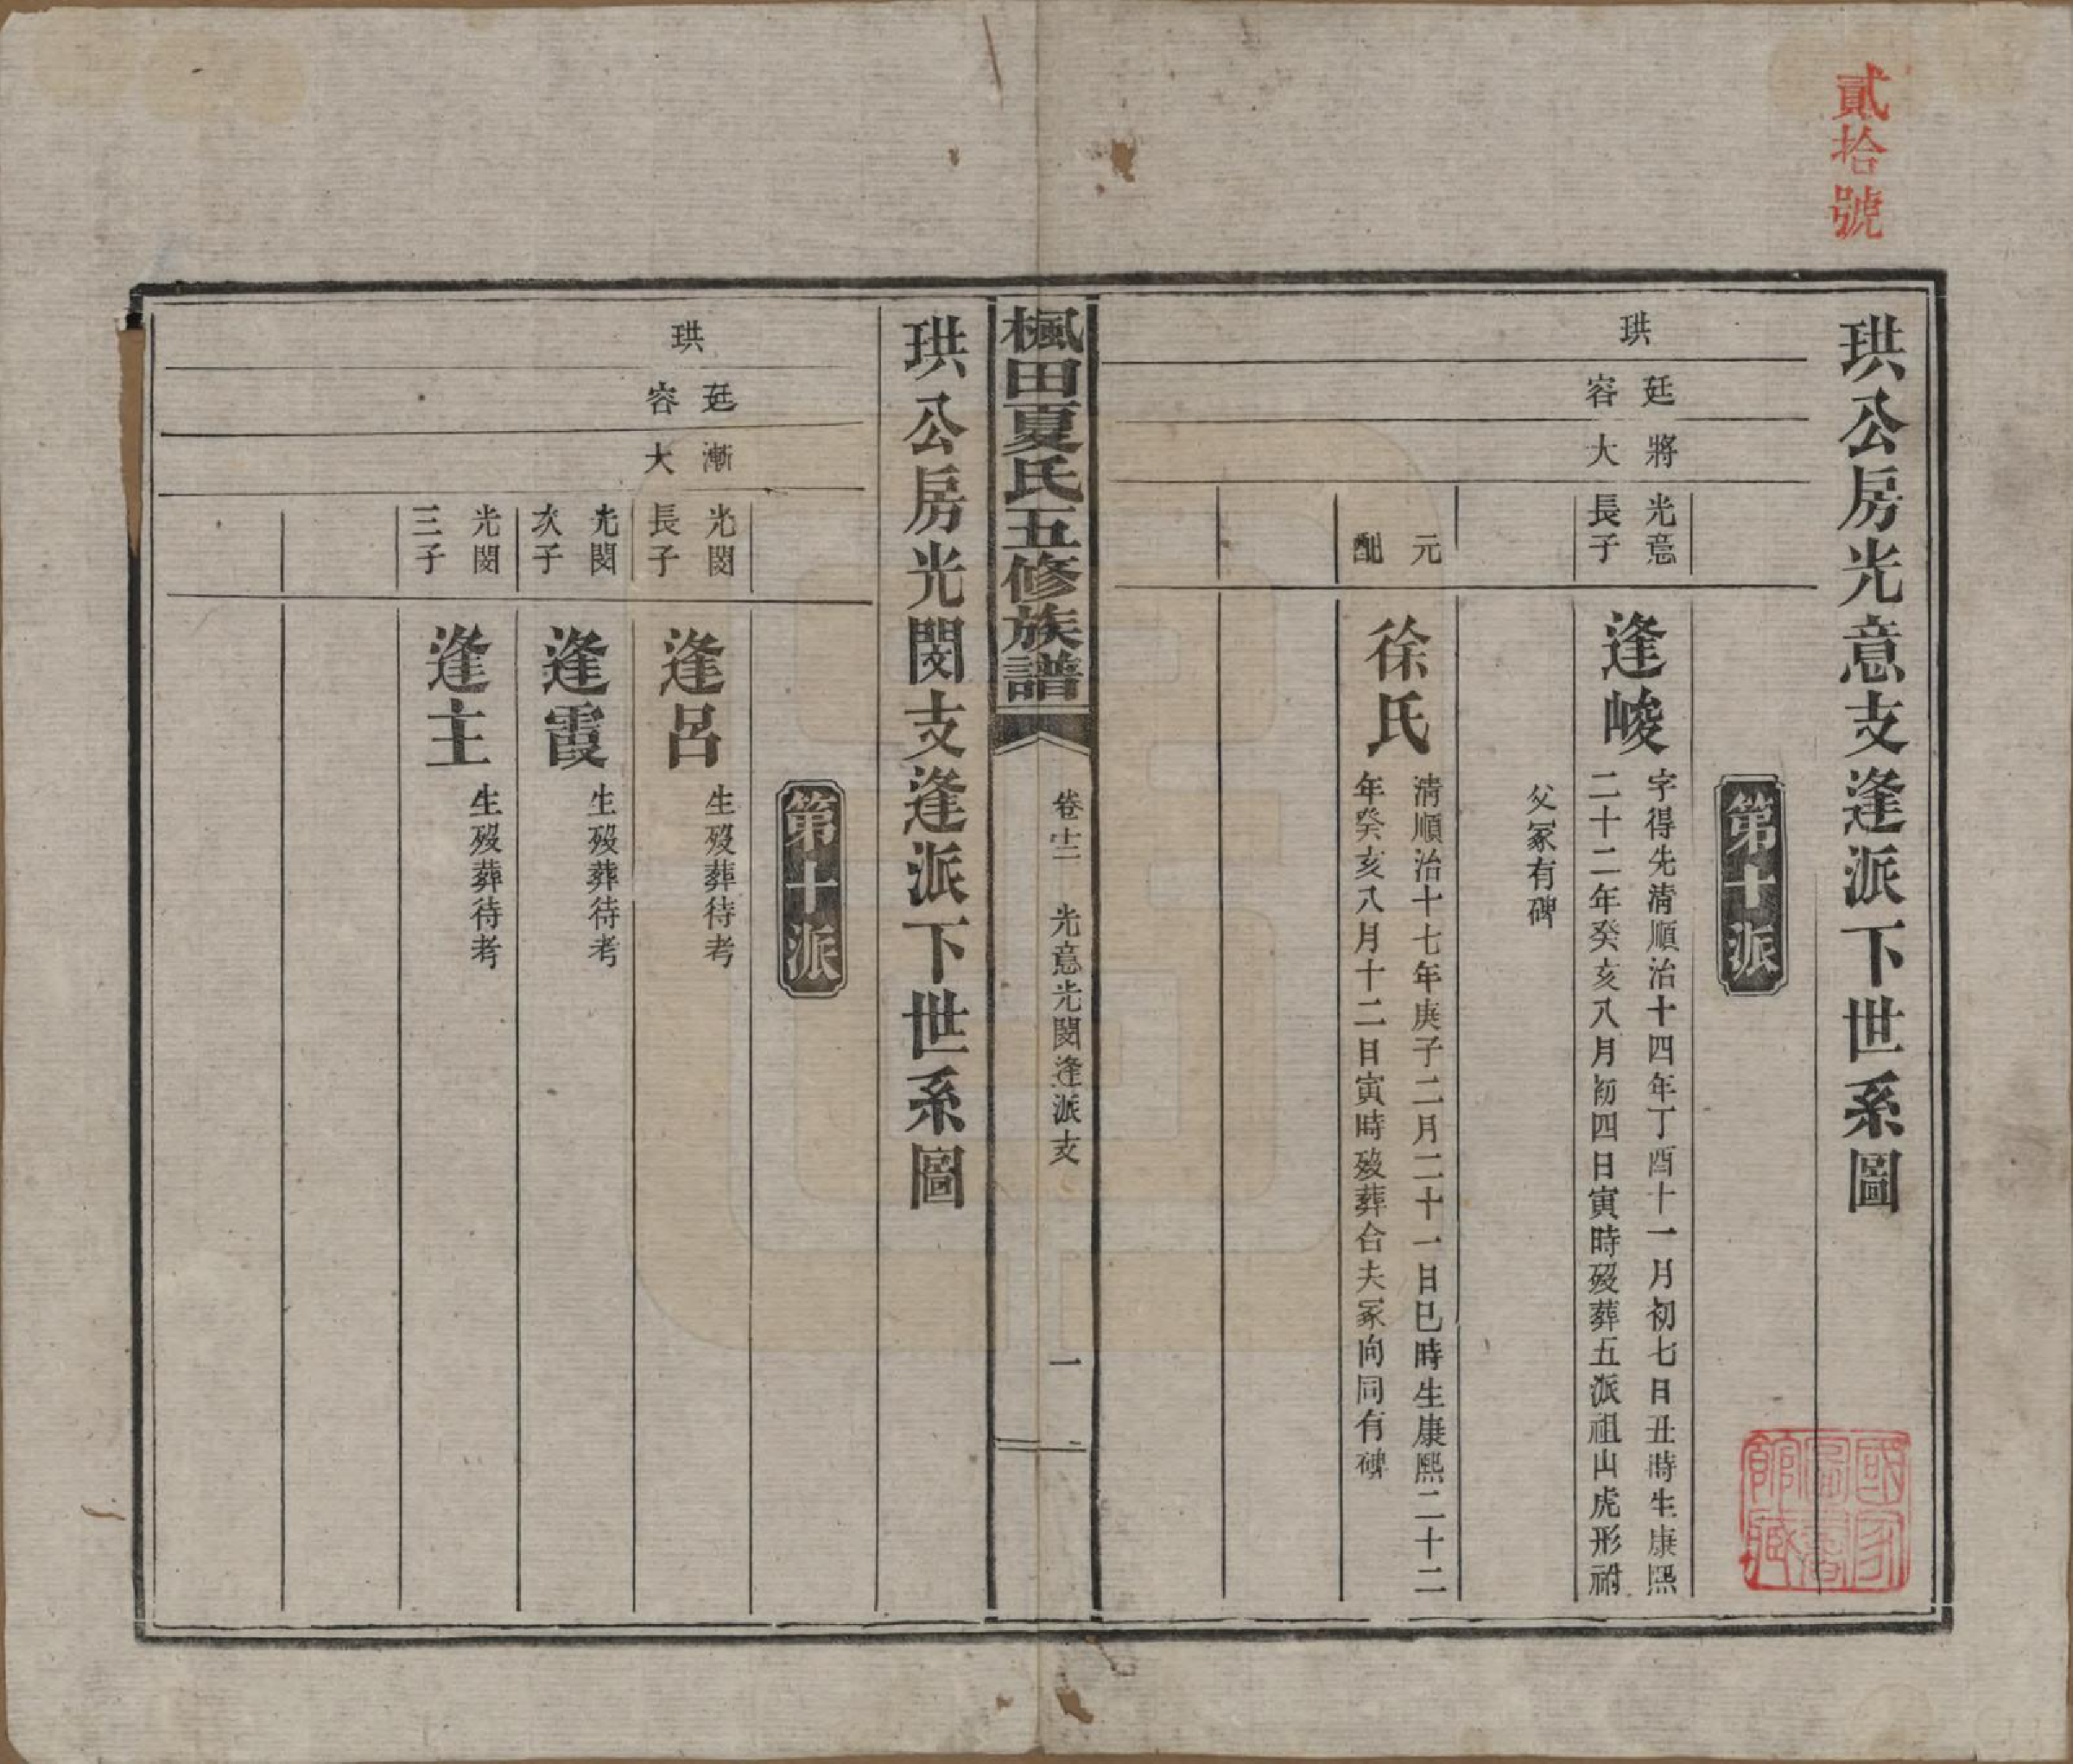 貳拾號
珙公房光意支逢派下世系圖
第十派
珙
廷容
將大
光意長子
逢峻
字得先清順治十四年丁酉十一月初七日丑時生康熙
二十二年癸亥八月初四日寅時歿葬五派祖山虎形祔
父冢有碑
元配
徐氏
清順治十七年庚子二月二十一日巳時生康熙二十二
年癸亥八月十二日寅時歿葬合夫冢向同有碑
國家圖書館藏
楓田夏氏五修族譜
卷十二
光意光閔逢派支
一
珙公房光閔支逢派下世系圖
第十派
珙
廷容
漸大
光閔長子
逢呂
生歿葬待考
光閔次子
逢霞
生歿葬待考
光閔三子
逢主
生歿葬待考